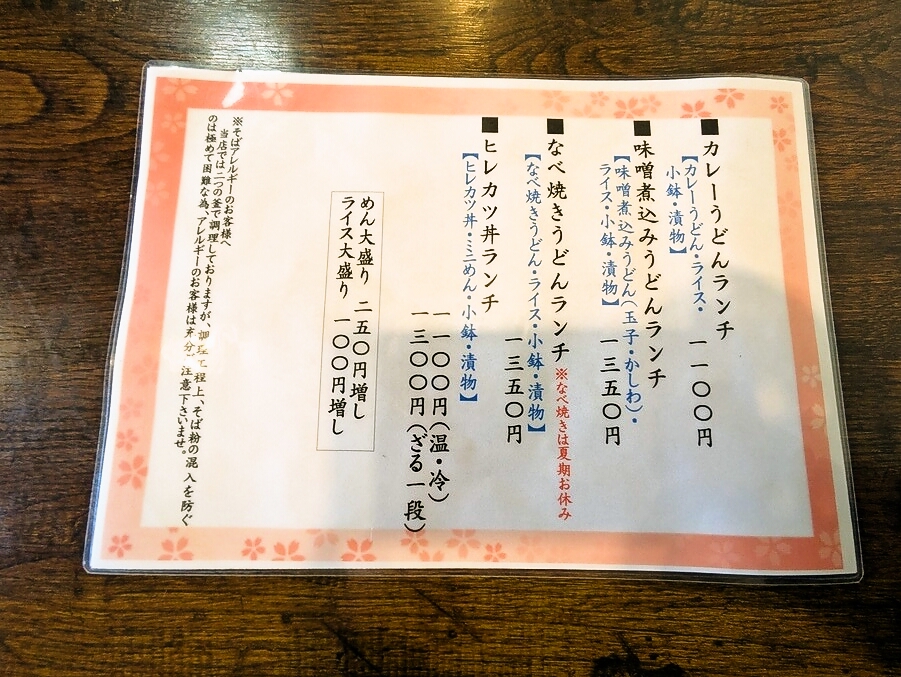 ■カレーうどんランチ
【カレーうどん・ライス・
小鉢・漬物】
一一〇〇円
■味噌煮込みうどんランチ
【味噌煮込みうどん(玉子・かしわ)・
ライス・小鉢・漬物】
一三五〇円
■なべ焼きうどんランチ ※なべ焼きは夏期お休み
【なべ焼きうどん・ライス・小鉢・漬物】
一三五〇円
■ヒレカツ丼ランチ
【ヒレカツ丼・ミニめん・小鉢・漬物】
一一〇〇円(温・冷)
一三〇〇円(ざる一段)
めん大盛り 二五〇円増し
ライス大盛り 一〇〇円増し
※そばアレルギーのお客様へ
当店では二つの釜で調理しておりますが、調理工程上、そば粉の混入を防ぐ
のは極めて困難な為、アレルギーのお客様は充分ご注意下さいませ。